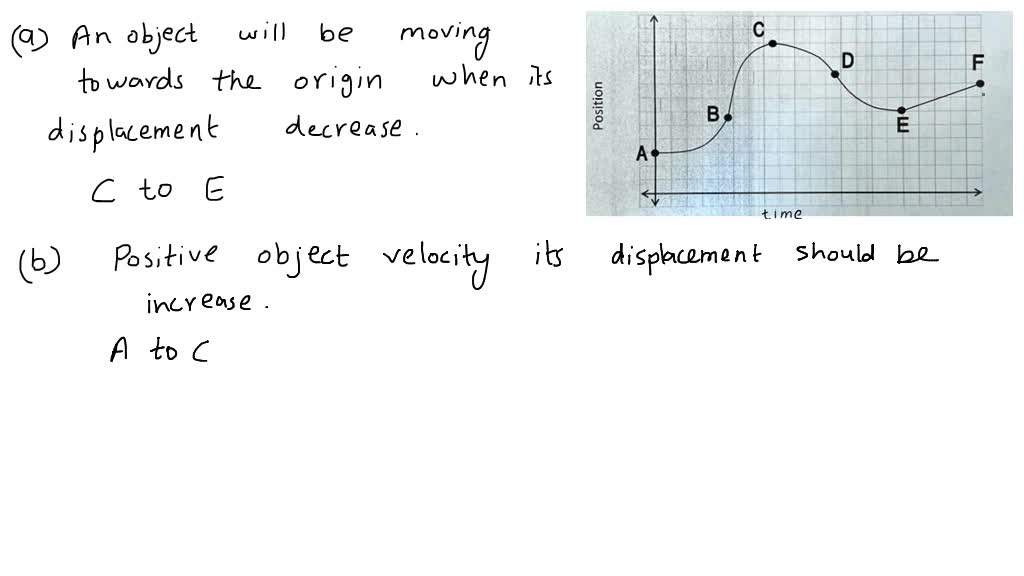 (a) An object will be moving
towards the origin when its
displacement decrease.
C to E
C
D
F
B
E
A
Position
time
(b) Positive object velocity its displacement should be
increase.
A to C